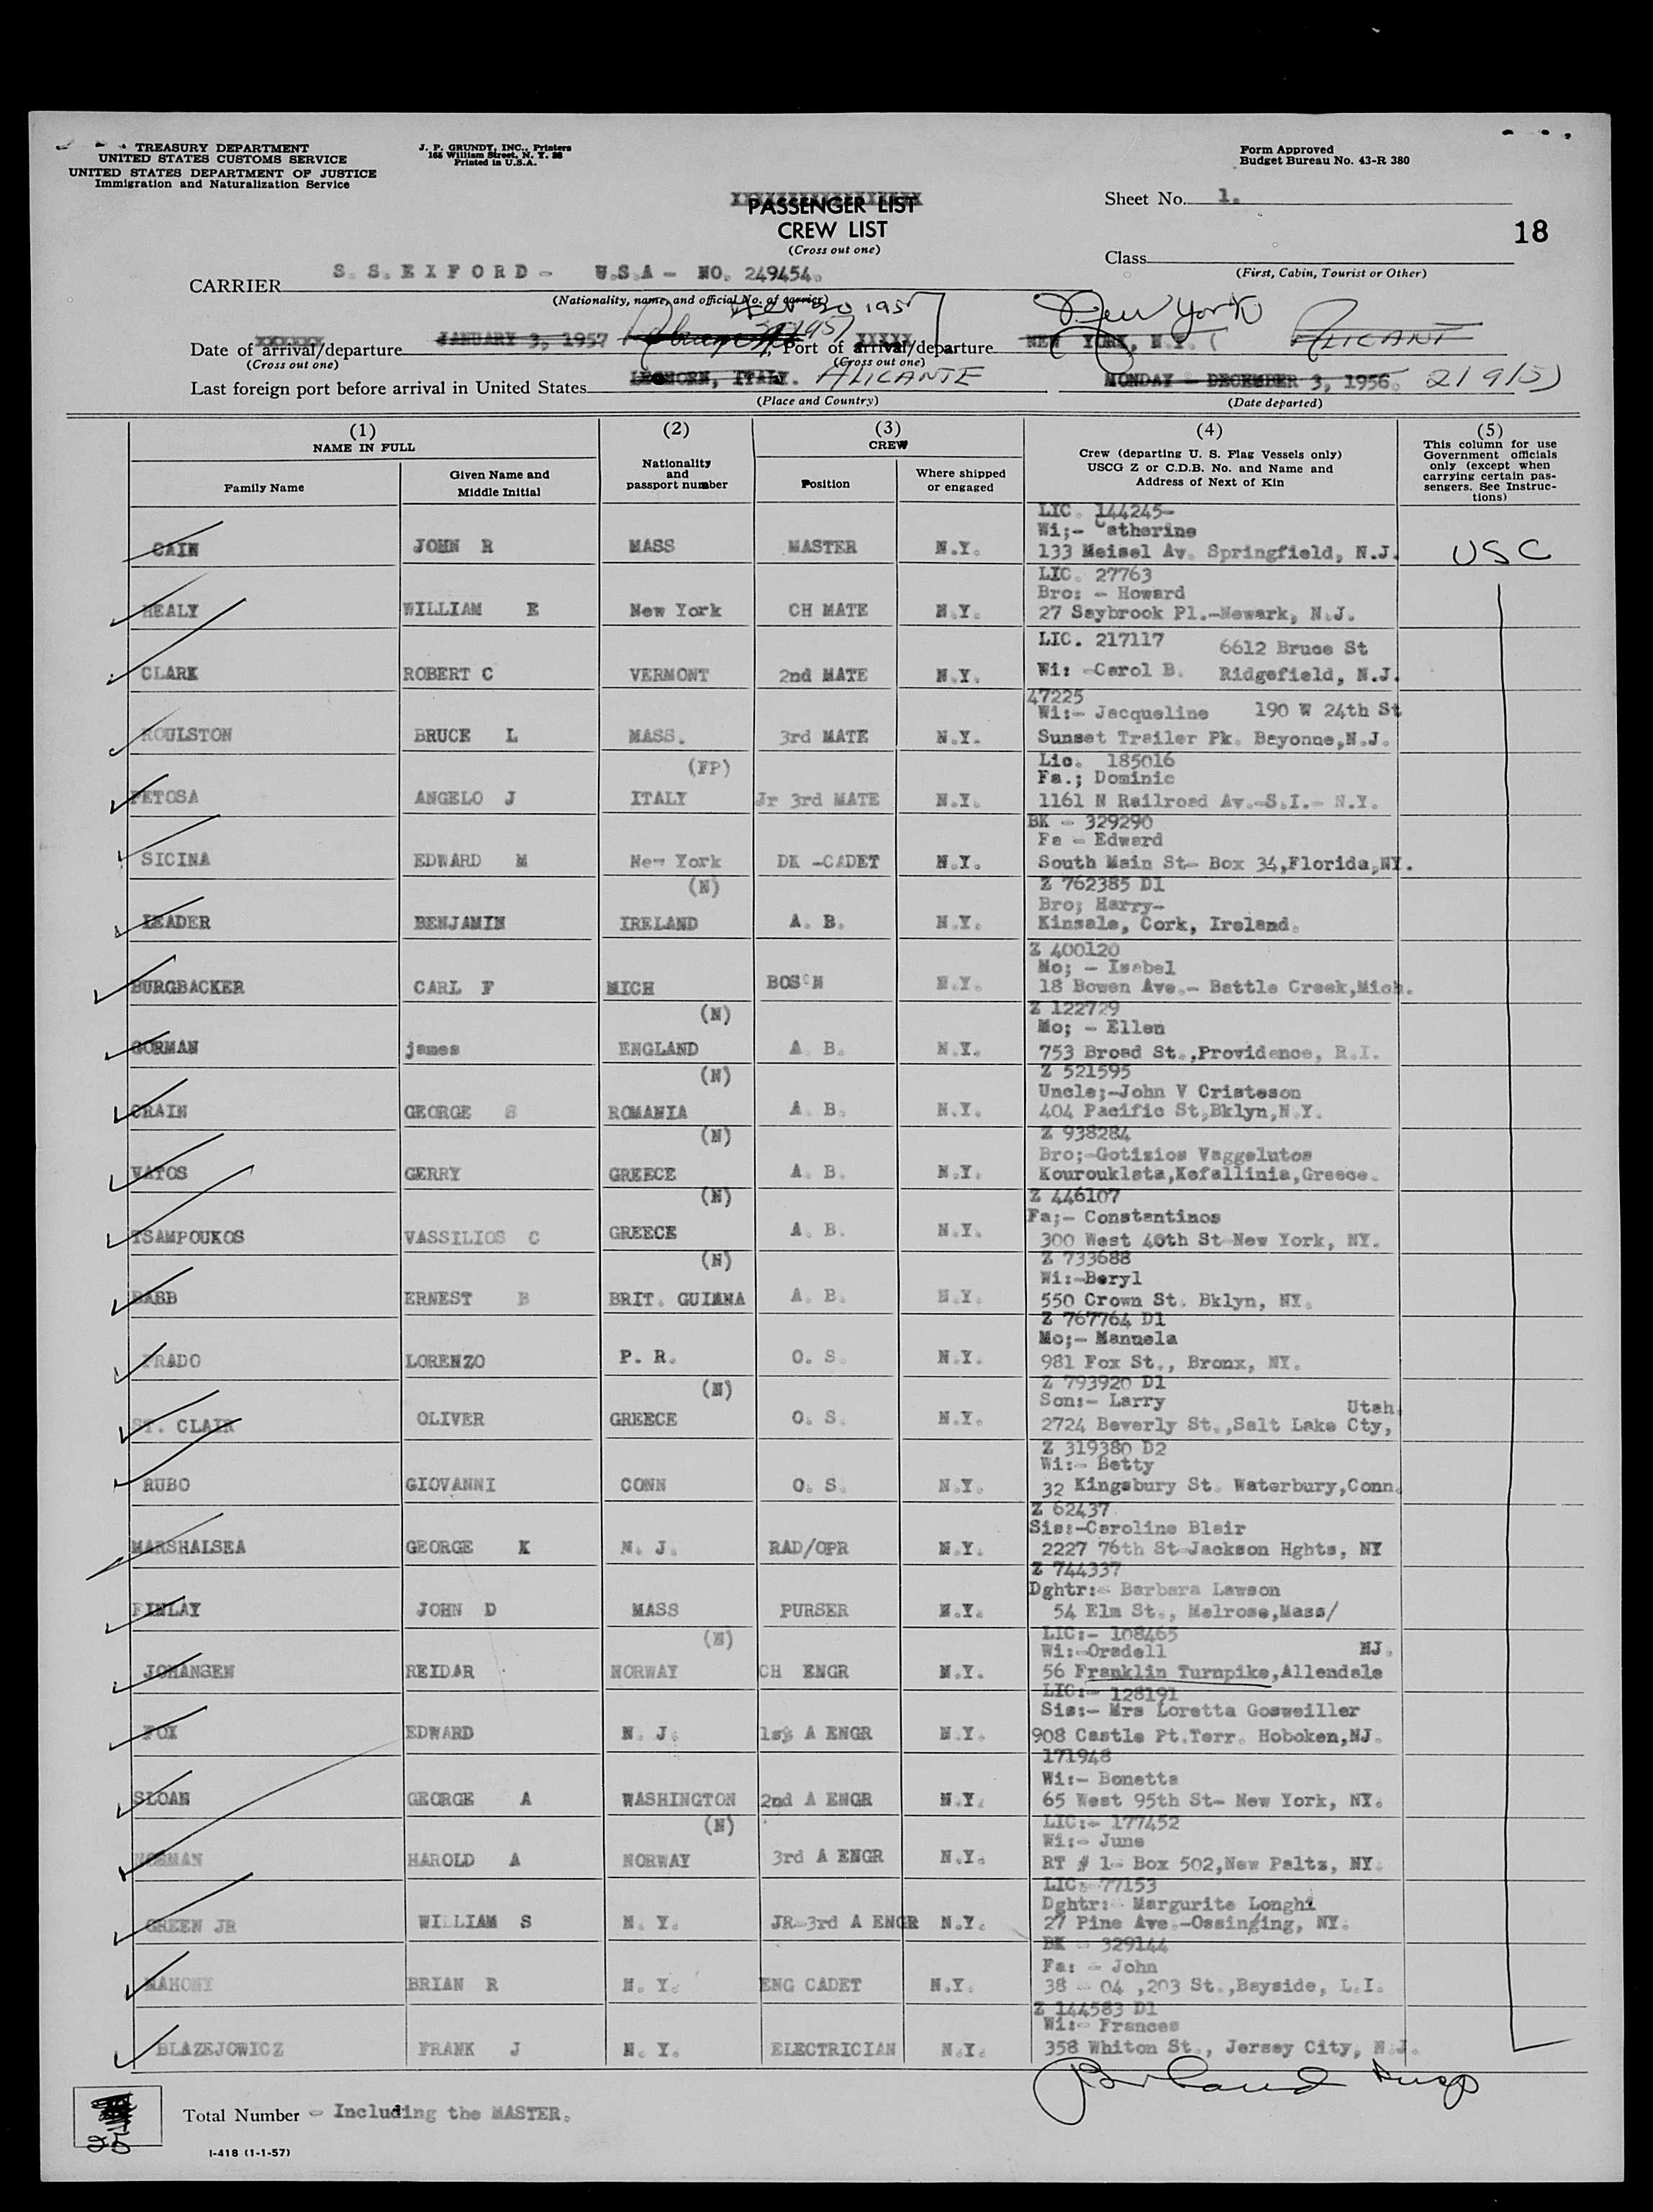 TREASURY DEPARTMENT
UNITED STATES CUSTOMS SERVICE
UNITED STATES DEPARTMENT OF JUSTICE
Immigration and Naturalization Service
J. P. GRUNDY, INC., Printers
Printed in U.S.A.
Form Approved
Budget Bureau No. 43-R 380
PASSENGER LIST
CREW LIST
(Cross out one)
Sheet No. 1.
18
Class
(First, Cabin, Tourist or Other)
CARRIER S. S. E X F O R D - U.S.A - NO. 249454.
(Nationality, name, and official No. of carrier)
1957
New York
Date of arrival/departure JANUARY 3, 1957 , Port of arrival/departure NEW YORK, N.Y. ALICANT
(Cross out one) (Cross out one)
Last foreign port before arrival in United States LEGHORN, ITALY. ALICANTE MONDAY - DECEMBER 3, 1956. 2/9/57
(Place and Country) (Date departed)
(1) (2) (3) (4) (5)
NAME IN FULL
Family Name
Given Name and Middle Initial
Nationality and passport number
CREW
Position
Where shipped or engaged
Crew (departing U. S. Flag Vessels only)
USCG Z or C.D.B. No. and Name and
Address of Next of Kin
This column for use
Government officials
only (except when
carrying certain pas-
sengers. See Instruc-
tions)
LIC. 144245-
Wi;- Catherine
CAIN JOHN R MASS MASTER N.Y. 133 Meisel Av. Springfield, N.J. USC
LIC. 27763
Bro: - Howard
HEALY WILLIAM E New York CH MATE N.Y. 27 Saybrook Pl.-Newark, N.J.
LIC. 217117 6612 Bruce St
CLARK ROBERT C VERMONT 2nd MATE N.Y. Wi: -Carol B. Ridgefield, N.J.
47225
Wi:- Jacqueline 190 W 24th St
ROULSTON BRUCE L MASS. 3rd MATE N.Y. Sunset Trailer Pk. Bayonne,N.J.
(FP) Lic. 185016
Fa.; Dominic
PETOSA ANGELO J ITALY Jr 3rd MATE N.Y. 1161 N Railroad Av.-S.I.- N.Y.
BK - 329290
Fa - Edward
SICINA EDWARD M New York DK -CADET N.Y. South Main St- Box 34,Florida,NY.
(N) Z 762385 D1
Bro; Harry-
LEADER BENJAMIN IRELAND A. B. N.Y. Kinsale, Cork, Ireland.
Z 400120
Mo; - Isabel
BURGBACKER CARL F MICH BOS'N N.Y. 18 Bowen Ave.- Battle Creek,Mich.
(N) Z 122729
Mo; - Ellen
GORMAN james ENGLAND A. B. N.Y. 753 Broad St.,Providence, R.I.
(N) Z 521595
Uncle;-John V Cristeson
CRAIN GEORGE S ROMANIA A. B. N.Y. 404 Pacific St,Bklyn,N.Y.
(N) Z 938284
Bro;-Gotizios Vaggelutos
VATOS GERRY GREECE A. B. N.Y. Kourouklata,Kefallinia,Greece.
(N) Z 446107
Fa;- Constantinos
TSAMPOUKOS VASSILIOS C GREECE A. B. N.Y. 300 West 40th St-New York, NY.
(N) Z 733688
Wi:-Beryl
BARB ERNEST B BRIT. GUIANA A. B. N.Y. 550 Crown St. Bklyn, NY.
Z 767764 D1
Mo;- Manuela
PRADO LORENZO P. R. O. S. N.Y. 981 Fox St., Bronx, NY.
(N) Z 793920 D1
Son:- Larry Utah.
ST. CLAIR OLIVER GREECE O. S. N.Y. 2724 Beverly St.,Salt Lake Cty,
Z 319380 D2
Wi:- Betty
RUBO GIOVANNI CONN O. S. N.Y. 32 Kingsbury St. Waterbury,Conn.
Z 62437
Sis:-Caroline Blair
MARSHALSEA GEORGE K N. J. RAD/OPR N.Y. 2227 76th St-Jackson Hghts, NY
Z 744337
Dghtr:- Barbara Lawson
FINLAY JOHN D MASS PURSER N.Y. 54 Elm St., Melrose,Mass/
(N) LIC:- 108465
Wi:-Oradell NJ.
JOHANSEN REIDAR NORWAY CH ENGR N.Y. 56 Franklin Turnpike,Allendale
LIC:- 128191
Sis:- Mrs Loretta Gosweiller
FOX EDWARD N. J. 1st A ENGR N.Y. 908 Castle Pt.Terr. Hoboken,NJ.
171948
Wi:- Bonetta
SLOAN GEORGE A WASHINGTON 2nd A ENGR N.Y. 65 West 95th St- New York, NY.
(N) LIC:- 177452
Wi:- June
NORMAN HAROLD A NORWAY 3rd A ENGR N.Y. RT # 1- Box 502,New Paltz, NY.
LIC: 77153
Dghtr:- Margurite Longhi
GREEN JR WILLIAM S N. Y. JR-3rd A ENGR N.Y. 27 Pine Ave.-Ossining, NY.
BK - 329144
Fa: - John
MAHONY BRIAN R N. Y. ENG CADET N.Y. 38 - 04 ,203 St.,Bayside, L.I.
Z 144583 D1
Wi:- Frances
BLAZEJOWICZ FRANK J N. Y. ELECTRICIAN N.Y. 358 Whiton St., Jersey City, N.J.
25 Total Number - Including the MASTER.
I-418 (1-1-57)